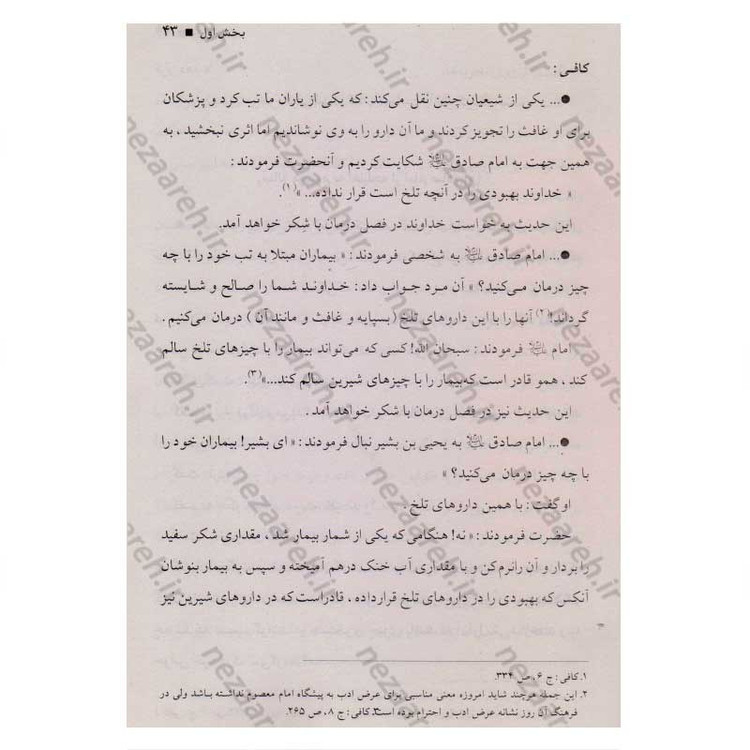 بخش اول ■ ۴۳
کافی :
●... یکی از شیعیان چنین نقل می‌کند : که یکی از یاران ما تب کرد و پزشکان
برای او غافث را تجویز کردند و ما آن دارو را به وی نوشاندیم اما اثری نبخشید ، به
همین جهت به امام صادق علیه‌السلام شکایت کردیم و آنحضرت فرمودند :
« خداوند بهبودی را در آنچه تلخ است قرار نداده... »(۱).
این حدیث به خواست خداوند در فصل درمان با شکر خواهد آمد.
●... امام صادق علیه‌السلام به شخصی فرمودند : « بیماران مبتلا به تب خود را با چه
چیز درمان می‌کنید؟ » آن مرد جواب داد : خداوند شما را صالح و شایسته
گرداند!(۲) آنها را با این داروهای تلخ (بسپایه و غافث و مانند آن ) درمان می‌کنیم .
امام علیه‌السلام فرمودند : سبحان الله! کسی که می‌تواند بیمار را با چیزهای تلخ سالم
کند ، همو قادر است که بیمار را با چیزهای شیرین سالم کند...»(۳).
این حدیث نیز در فصل درمان با شکر خواهد آمد .
●... امام صادق علیه‌السلام به یحیی بن بشیر نبال فرمودند : « ای بشیر! بیماران خود را
با چه چیز درمان می‌کنید؟ »
او گفت : با همین داروهای تلخ .
حضرت فرمودند : « نه! هنگامی که یکی از شمار بیمار شد ، مقداری شکر سفید
را بردار و آن را نرم کن و با مقداری آب خنک درهم آمیخته و سپس به بیمار بنوشان
آنکس که بهبودی را در داروهای تلخ قرارداده ، قادراست که در داروهای شیرین نیز
۱. کافی : ج ۶ ، ص ۳۳۴.
۲. این جمله هرچند شاید امروزه معنی مناسبی برای عرض ادب به پیشگاه امام معصوم نداشته باشد ولی در
فرهنگ آن روز نشانه عرض ادب و احترام بوده است. ۳.کافی : ج ۸ ، ص ۲۶۵.
nezaareh.ir